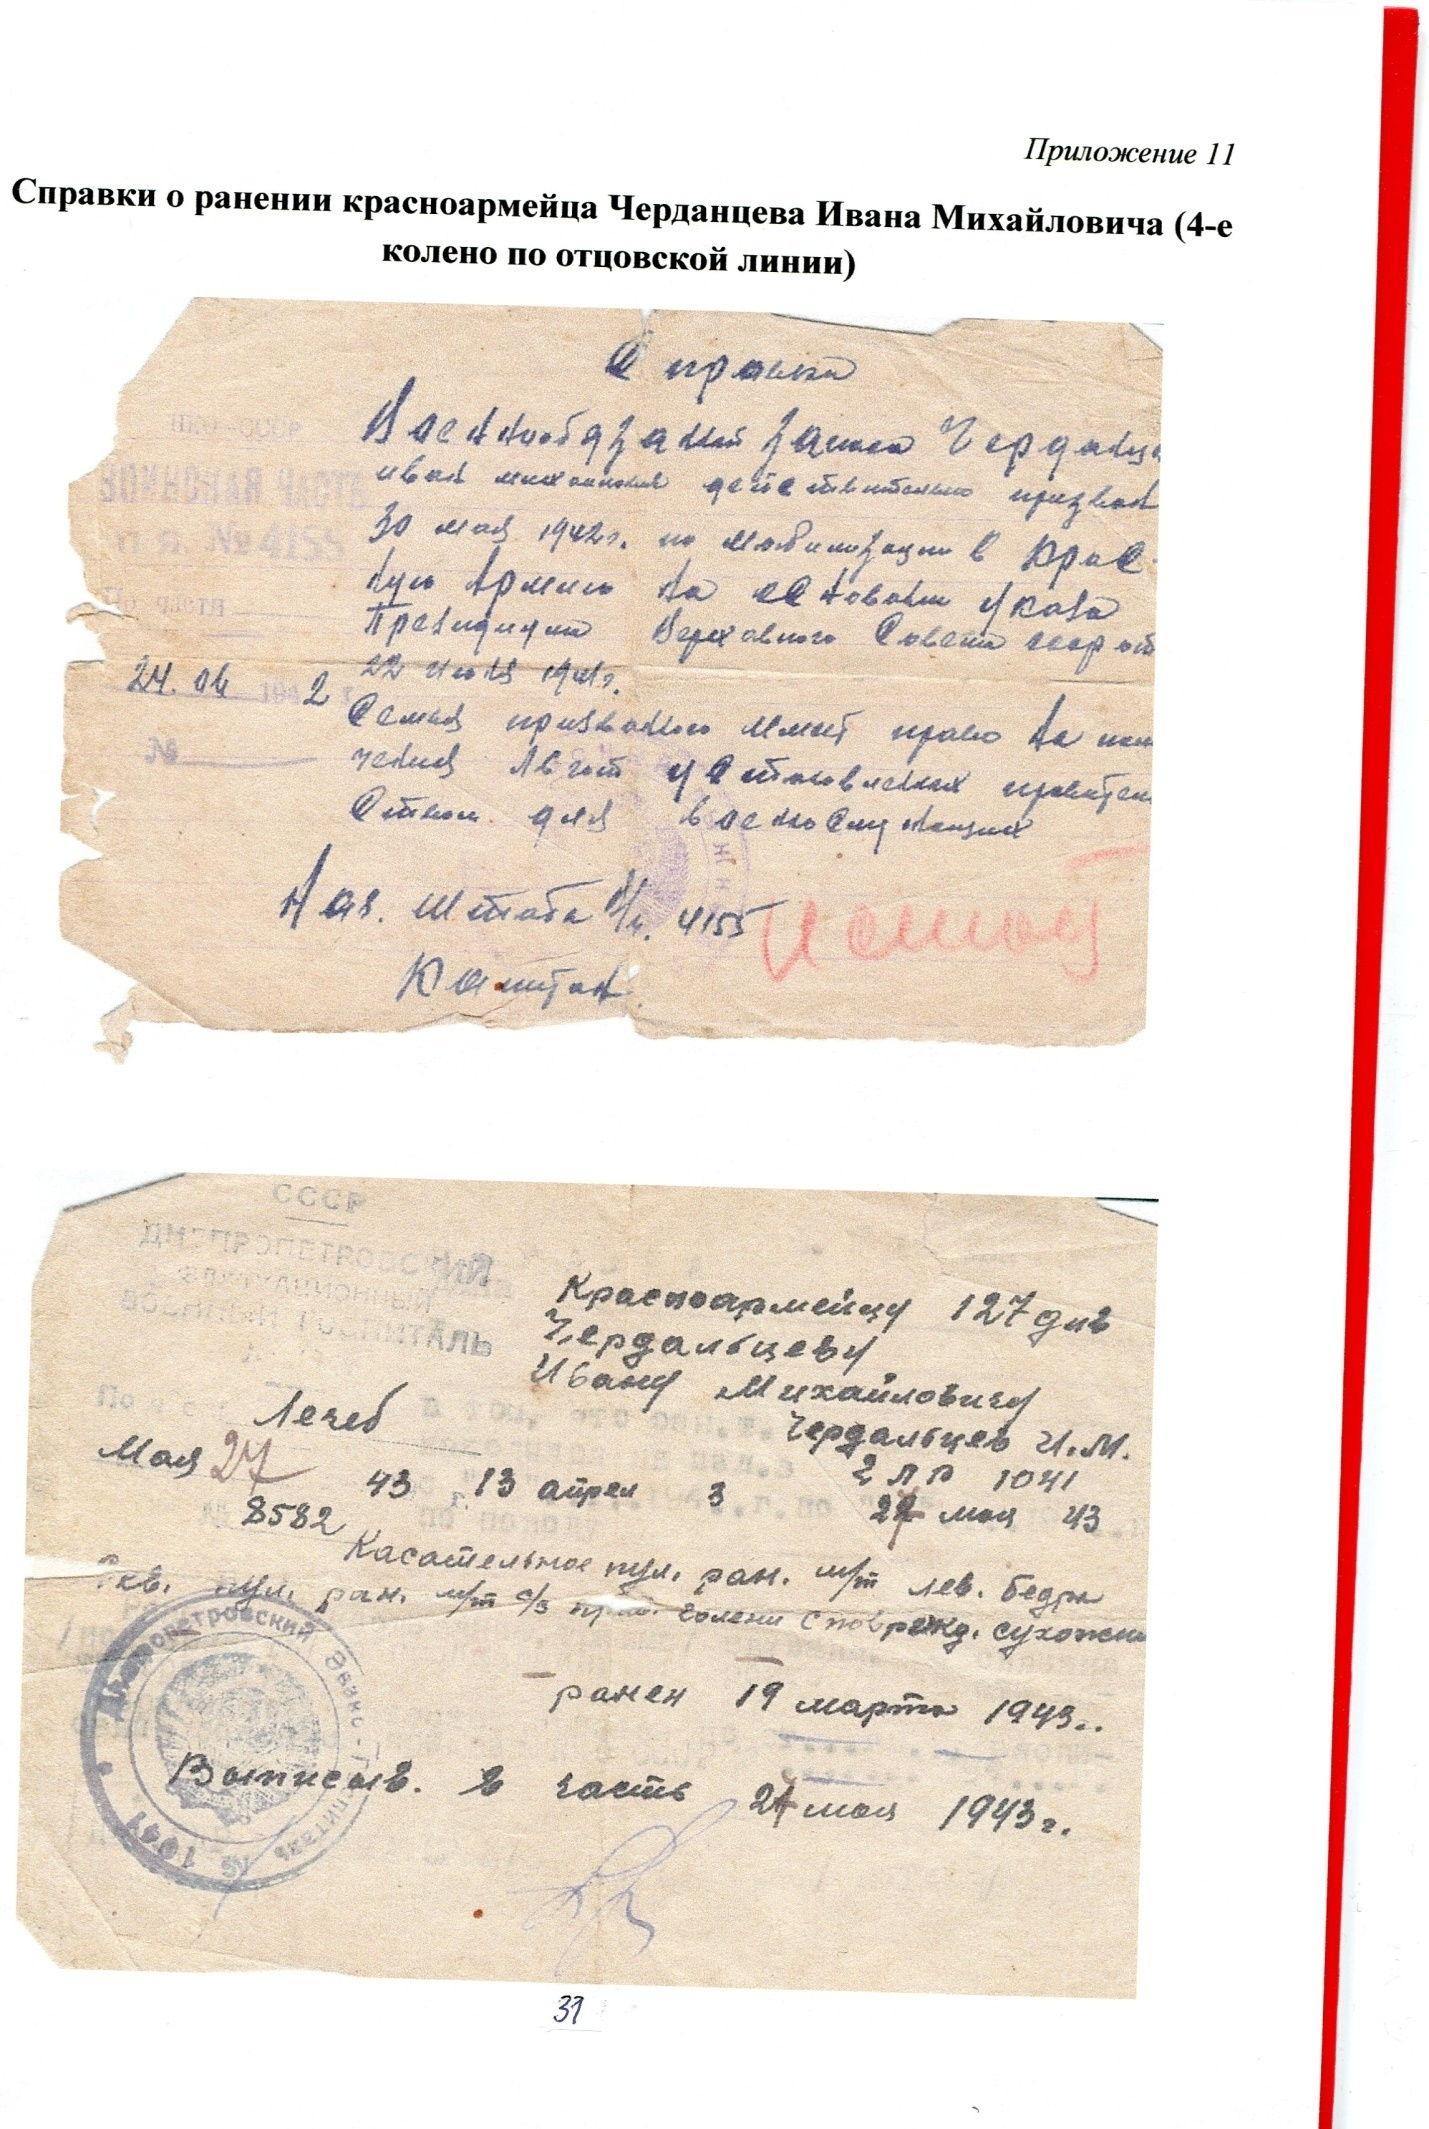 Приложение 11
Справки о ранении красноармейца Черданцева Ивана Михайловича (4-е
колено по отцовской линии)
Справка
НКО-СССР
ВОИНСКАЯ ЧАСТЬ
п. я. № 4155
По части
24. 06 1942 г.
№
Военнообязанный запаса Черданце
иван михайлович действительно призван
30 мая 1942г. по мобилизации в Крас
ную Армию на основании указа
Президиума Верховного Совета ссср от
22 июня 1941г.
Семья призванного имеет право на полу
чения льгот установленных правитель
ством для военнослужащих
Нач. штаба в/ч. 4155
Капитан
СССР
ДНЕПРОПЕТРОВСКИЙ
ЭВАКУАЦИОННЫЙ
ВОЕННЫЙ ГОСПИТАЛЬ
Красноармейцу 127 див
Чердальцеву
Ивану Михайловичу
Лечеб
Чердальцев И.М.
Мая 27 43 13 апрел 3
1041
8582
27 мая 43
Касательное пул. ран. м/т лев. бедра
Скв. пул. ран. м/т с/з прав. голени с поврежд. сухожи
Днепропетровский Эвако-Госпиталь № 1041
ранен 19 марта 1943..
Выписыв. в часть 27 мая 1943г.
31